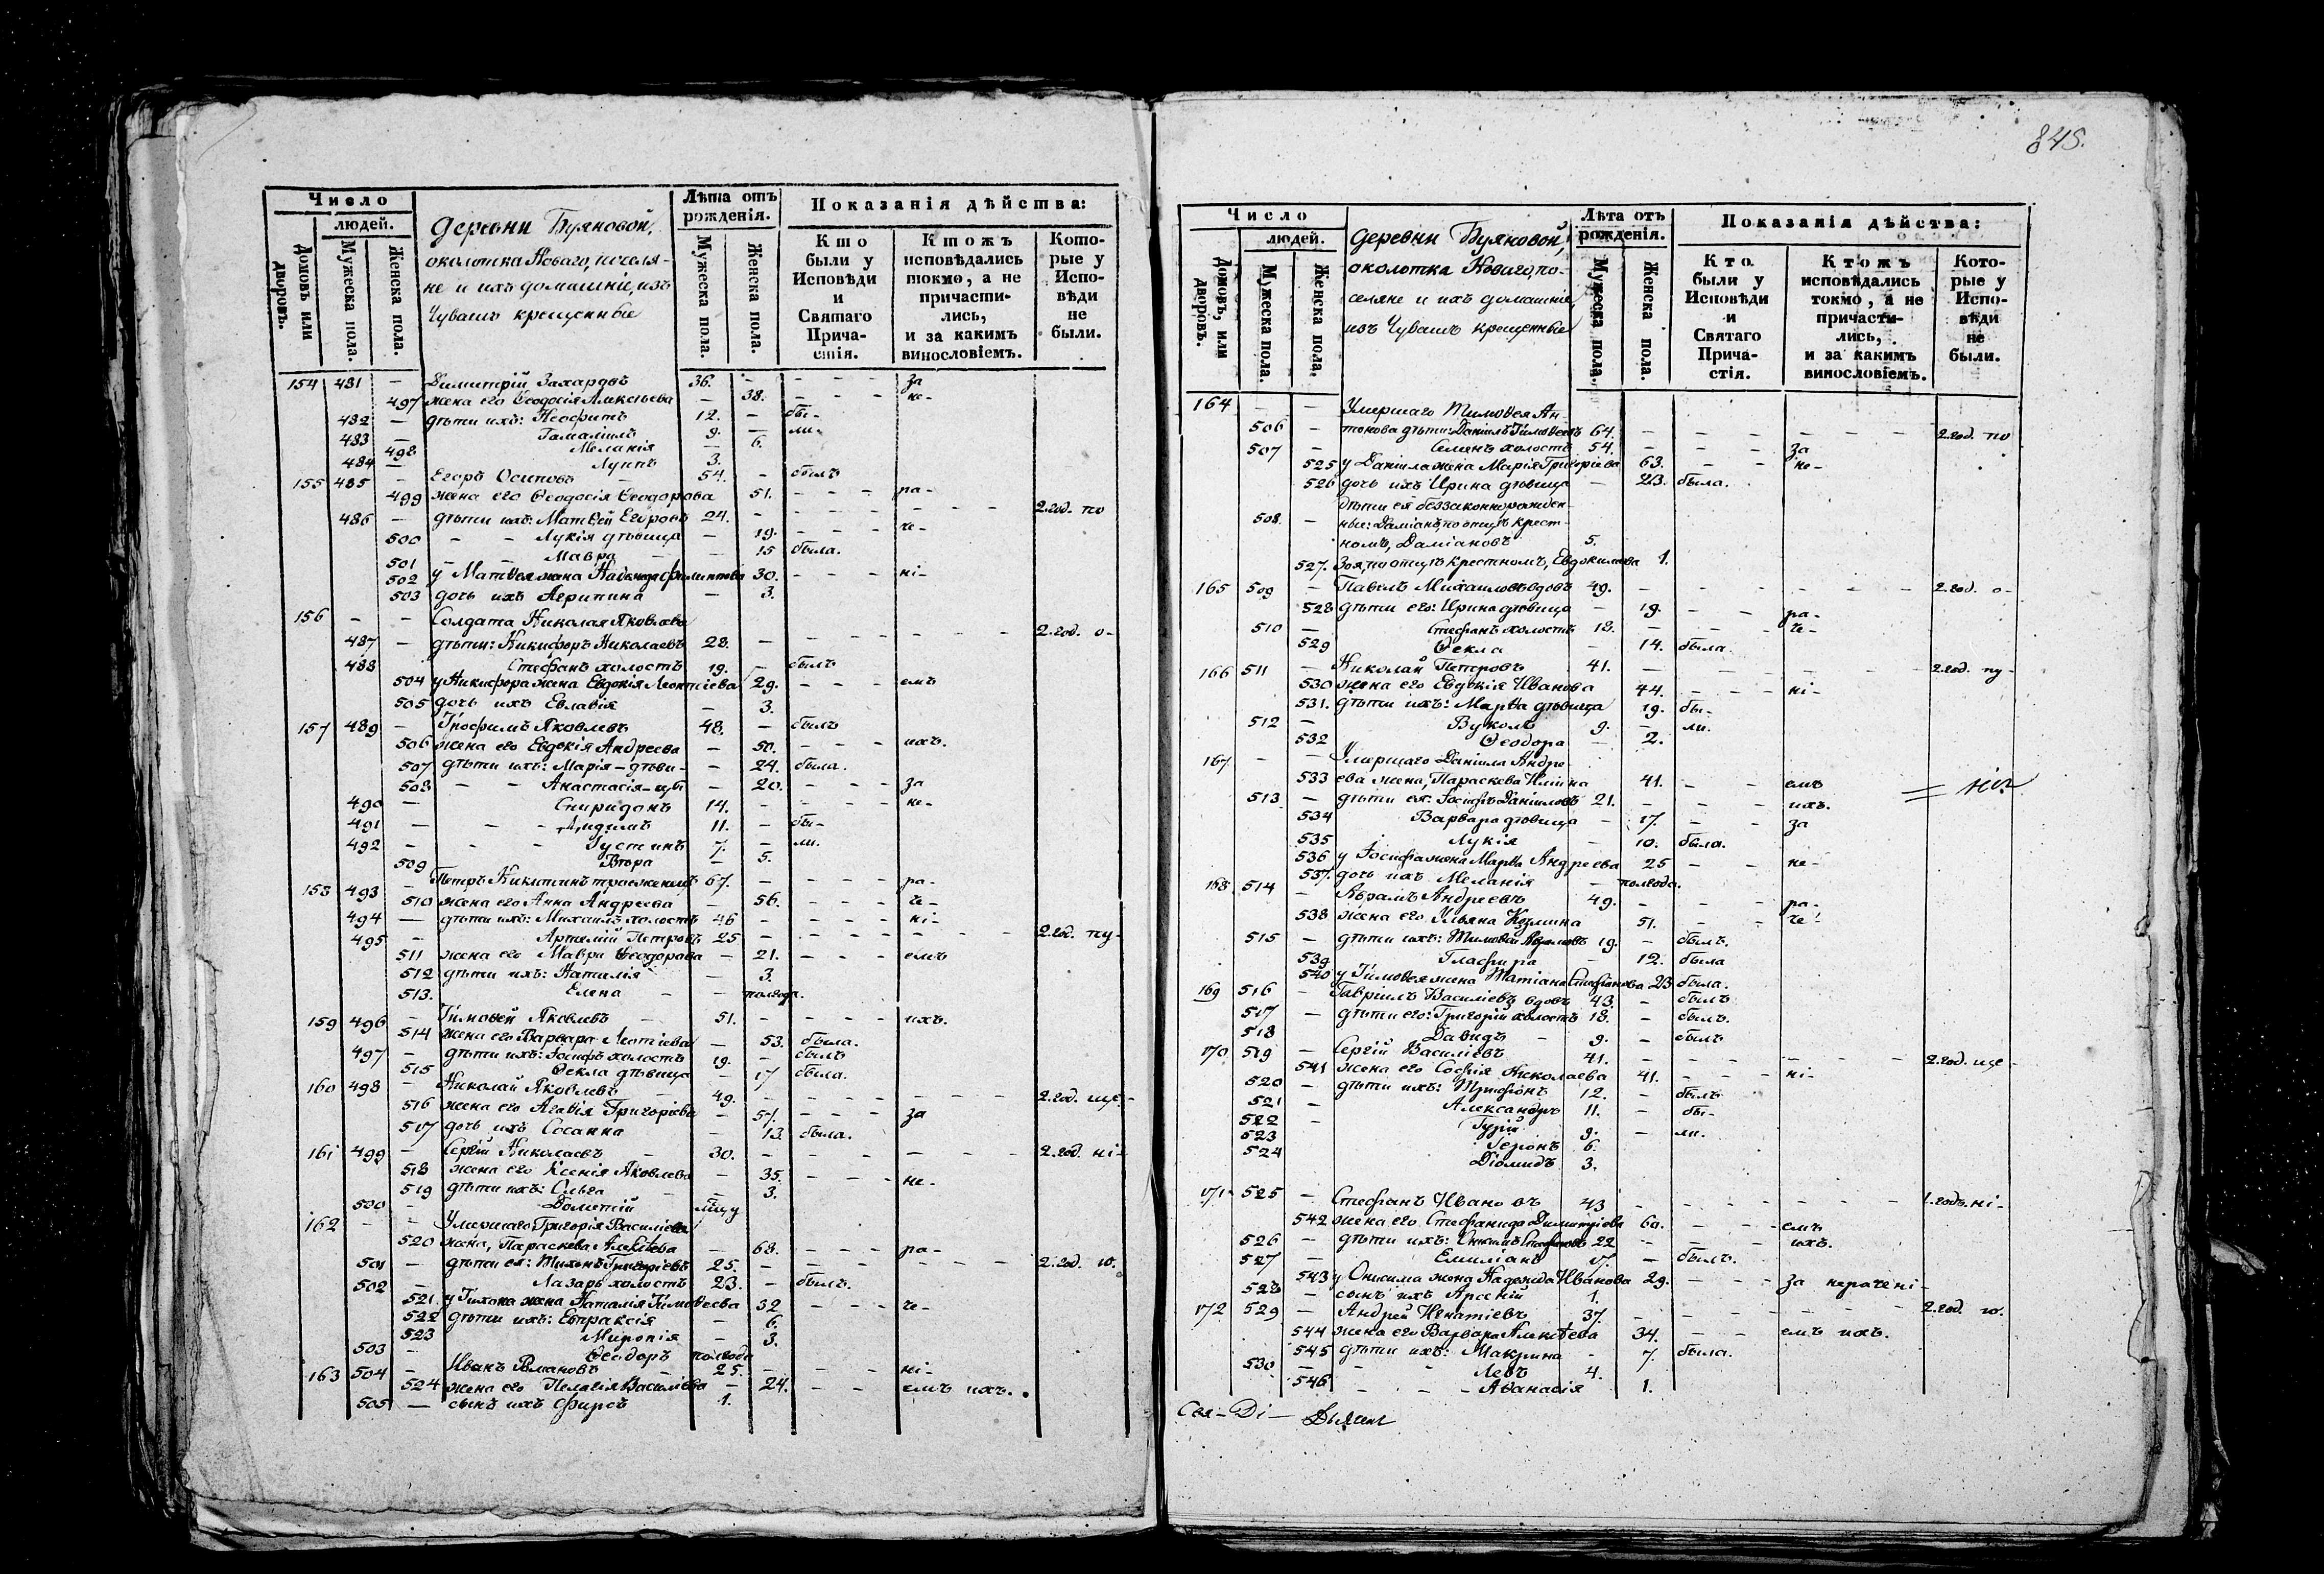 845.
Число
людей.
Домовъ или дворовъ.
Мужеска пола.
Женска пола.
деревни Буяновой,
околотка Новаго, поселя-
не и ихъ домашніе, изъ
Чувашъ крещенные
Лѣта отъ рожденія.
Мужеска пола.
Женска пола.
Показанія дѣйства:
Кто были у Исповѣди и Святаго Причастія.
Ктожъ исповѣдались токмо, а не причастились, и за какимъ винословіемъ.
Которые у Исповѣди не были.
154 481 — Димитрій Захаровъ 36. — за
497 жена его Ѳеодосія Алексѣева — 38. не-
482 — дѣти ихъ: Неофитъ 12. — бы-
483 — Гамаліилъ 9. — ли.
498 Меланія — 6.
484 — Луппъ 3.
155 485 — Егоръ Осиповъ 54. — былъ
499 жена его Ѳеодосія Ѳеодорова 51. ра-
486 — дѣти ихъ: Матвей Егоровъ 24. — 2. год. по
500 Лукія дѣвица — 19. че-
501 Мавра — 15 была.
502 у Матвея жена Надежда Филиппова 30. ні-
503 дочь ихъ Агрипина — 3.
156 — — Солдата Николая Яковлева
487 — дѣти: Никифоръ Николаевъ 28. — 2. год. о-
488 Стефанъ холостъ 19. — былъ
504 у Никифора жена Евдокія Леонтіева 29. емъ
505 дочь ихъ Евлавія — 3.
157 489 — Трофимъ Яковлевъ 48. — былъ
506 жена его Евдокія Андреева — 50. ихъ.
507 дѣти ихъ: Марія — дѣви- — 24. была.
508 Анастасія — цы — 20. за
490 — Спиридонъ 14. — не-
491 — 11. — бы-
492 — Густинъ 7. — ли.
509 Втора — 5.
158 493 — Петръ Никитинъ троеженецъ 67. — ра-
510 жена его Анна Андреева — 56. че-
494 — дѣти ихъ: Михаилъ холостъ 46 — ні-
495 — Артемій Петровъ 25 — 2. год. пу-
511 жена его Мавра Ѳеодорова — 21. емъ
512 дѣти ихъ: Наталія — 3.
513. Елена — — полгода.
159 496 — Тимоѳей Яковлевъ 51. — ихъ.
514 жена его Варвара Леонтіева — 53. была.
497 — дѣти ихъ: Іосифъ холостъ 19. — былъ
515 Ѳекла дѣвица — 17 была.
160 498 — Николай Яковлевъ 49. — 2. год. ще-
516 жена его Агаѳія Григоріева — 57. за
517 дочь ихъ Сосанна — 13. была.
161 499 — Сергій Николаевъ 30. — 2. год. ні-
518 жена его Ксенія Яковлева — 35. не-
519 дѣти ихъ: Ольга — 3.
500 — Дометій
162 — — Умершаго Григорія Василіева
520 жена, Параскева Алексѣева — 68. ра-
501 — дѣти ея: Тихонъ Григорьевъ 25. — 2. год. ю.
502 — Лазарь холостъ 23. — былъ.
521. у Тихона жена Наталія Тимоѳеева 32 че-
522 дѣти ихъ: Евпраксія — 6.
523 Миропія — 3.
503 — Ѳеодоръ полгода
163 504 — Иванъ Романовъ 25. — ні-
524 жена его Пелагія Василіева — 24. емъ ихъ.
505 — сынъ ихъ Фирсъ 1.
Число
людей.
Домовъ, или дворовъ.
Мужеска пола.
Женска пола,
деревни Буяновой,
околотка Новаго, по-
селяне и ихъ домашніе,
изъ Чувашъ крещенные
Лѣта отъ рожденія.
Мужеска пола.
Женска пола.
Показанія дѣйства:
Кто были у Исповѣди и Святаго Причастія.
Ктожъ исповѣдались токмо, а не причастились, и за какимъ винословіемъ.
Которые у Исповѣди не были.
164 — — Умершаго Тимоѳея Ан-
506 — тонова дѣти: Даніилъ Тимоѳеевъ 64. — 2. год. по
507 — Семенъ холостъ 54. — за
525 у Даніила жена Марія Григоріева 63. не-
526 дочь ихъ Ирина дѣвица — 23. была.
дѣти ея беззаконнорожден-
508. — ные: Даміанъ, по отцѣ крест-
номъ, Даміановъ 5.
527. Зоя, по отцѣ крестномъ, Евдокимова 1.
165 509 — Павелъ Михаиловъ вдовъ 49. — 2. год. о-
528 дѣти его: Ирина дѣвица — 19. ра-
510 — Стефанъ холостъ 18. — че-
529 Ѳекла — 14. была.
166 511 — Николай Петровъ 41. — 2. год. пу-
530 жена его Евдокія Иванова 44. ні-
531. дѣти ихъ: Марѳа дѣвица 19. бы-
512 — Вуколъ 9. — ли.
532 Ѳеодора — 2.
167. — — Умершаго Даніила Андре-
533 ева жена, Параскева Ильина 41. емъ
513 — дѣти ея: Іосифъ Даниловъ 21. — ихъ.
534 Варвара дѣвица — 17. за
535 Лукія — 10. была.
536 у Іосифа жена Марѳа Андреева 25 не-
537. дочь ихъ Меланія — полгода.
168 514 — Авраамъ Андреевъ 49. — ра-
538 жена его Ульяна Козмина 51. че-
515 — дѣти ихъ: Тимоѳей Абрамовъ 19. — былъ.
539 Гласфира — 12. была
540 у Тимоѳея жена Татіана Стефанова 23 была.
169 516 — Гавріилъ Василіевъ вдовъ 43. — былъ
517 — дѣти его: Григорій холостъ 18. — былъ.
518 Давидъ — 9. — былъ
170 519 — Сергій Василіевъ 41. — 2. год. ще-
541 жена его Софія Николаева 41. ні-
520 — дѣти ихъ: Трифонъ 12. — былъ
521 — Александръ 11. — бы-
522 — Гурій 9. — ли.
523 6.
524 Діомидъ 3.
171 525 — Стефанъ Ивановъ 43 — 1. годъ. ні-
542 жена его Стефанида Димитріева 60. — емъ
526 — дѣти ихъ: Онисимъ Стефановъ 22 — ихъ.
527 Емиліанъ 17. — былъ.
543 у Онисима жена Надежда Иванова 29. — за нерачені-
528 — сынъ ихъ Арсеній 1.
172 529 — Андрей Игнатіевъ 37. — 2. год. ю.
544 жена его Варвара Алексѣева 34. емъ ихъ.
545 дѣти ихъ: Макрина — 7. была.
530 — Левъ 4.
546 — Аѳанасія 1.
Свя- Ді-